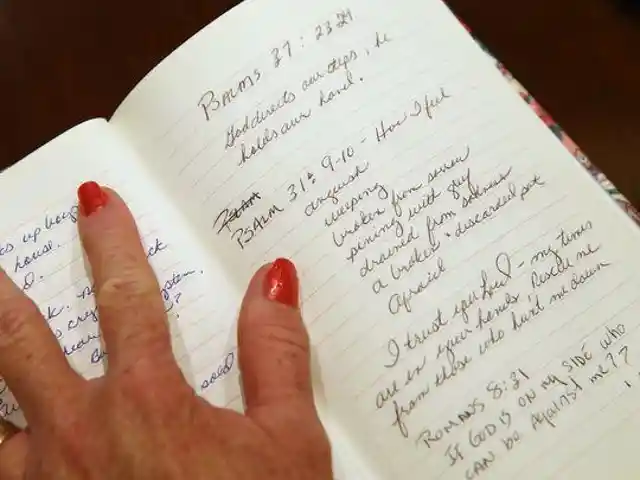 as up
house.
sold
PSALMS 37: 23-24
God directs our steps, he
holds our hand.
PSALM 31: 9-10 - How I feel
anguish
weeping
broken from sorrow
pining with grief
drained from sadness
a broken + discarded pot
Afraid
I trust you Lord - my times
are in your hands. Rescue me
from those who hunt me down
ROMANS 8:31
IF GOD IS ON MY SIDE WHO
CAN BE AGAINST ME??